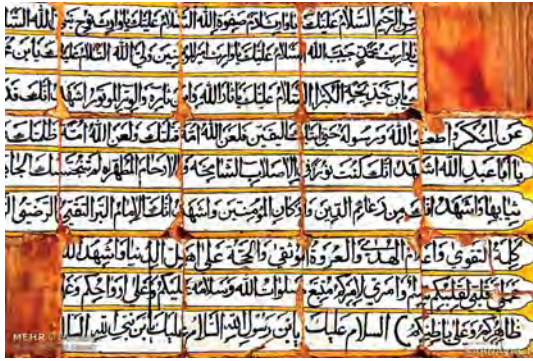 السلام عليك يا وارث ادم صفوة الله السلام عليك يا وارث نوح نبي الله
حبيب الله السلام عليك يا وارث امير المؤمنين ولي الله السلام عليك يا بن
يا بن خديجة الكبرى السلام عليك يا ثار الله وابن ثاره والوتر الموتور اشهد انك قد
عن المنكر واطعت الله ورسوله حتى اليقين فلعن الله امة قتلتك ولعن الله امة ظلمتك
يا ابا عبد الله اشهد انك كنت نورا في الاصلاب الشامخة والارحام المطهرة لم تنجسك
ثيابها واشهد انك من دعائم الدين واركان المؤمنين واشهد انك الامام البر التقي الرضي
كلمة التقوى واعلام الهدى والعروة الوثقى والحجة على اهل الدنيا واشهد الله
قلبي لقلبكم سلم وامري لامركم متبع صلوات الله وسلامه عليكم وعلى ارواحكم
ظاهركم وعلى باطنكم السلام عليك يا بن رسول الله السلام عليك يا بن نبي الله
MEHR